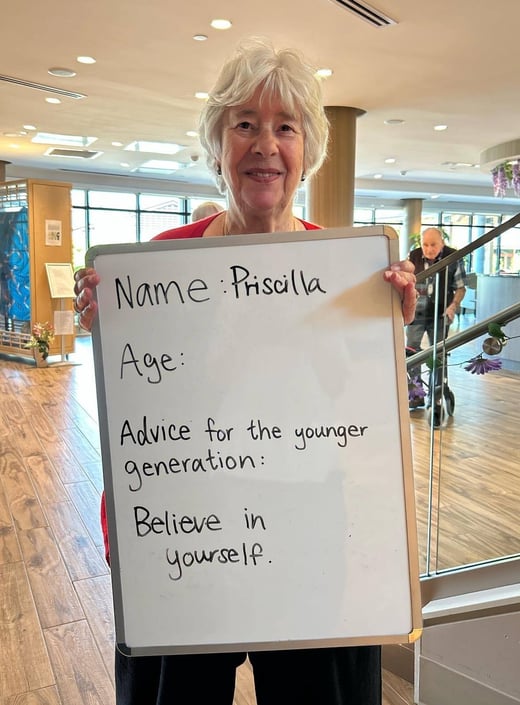 Name : Priscilla
Age:
Advice for the younger
generation:
Believe in
yourself.